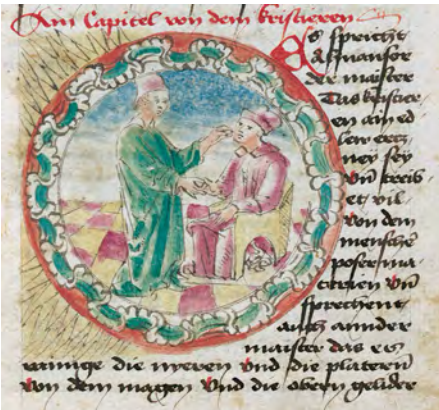 Ain Capitel von dem kristieren
Es spricht
Almansor
der maister
Das kristier
en ain ed
lew ertz
ney sey
vnd treib
et vil
von dem
mensche
poser ma
terien vnd
sprechent
auch annder
maister das es
rainige die nyeren vnd die plateren
von dem magen vnd die obern gelider